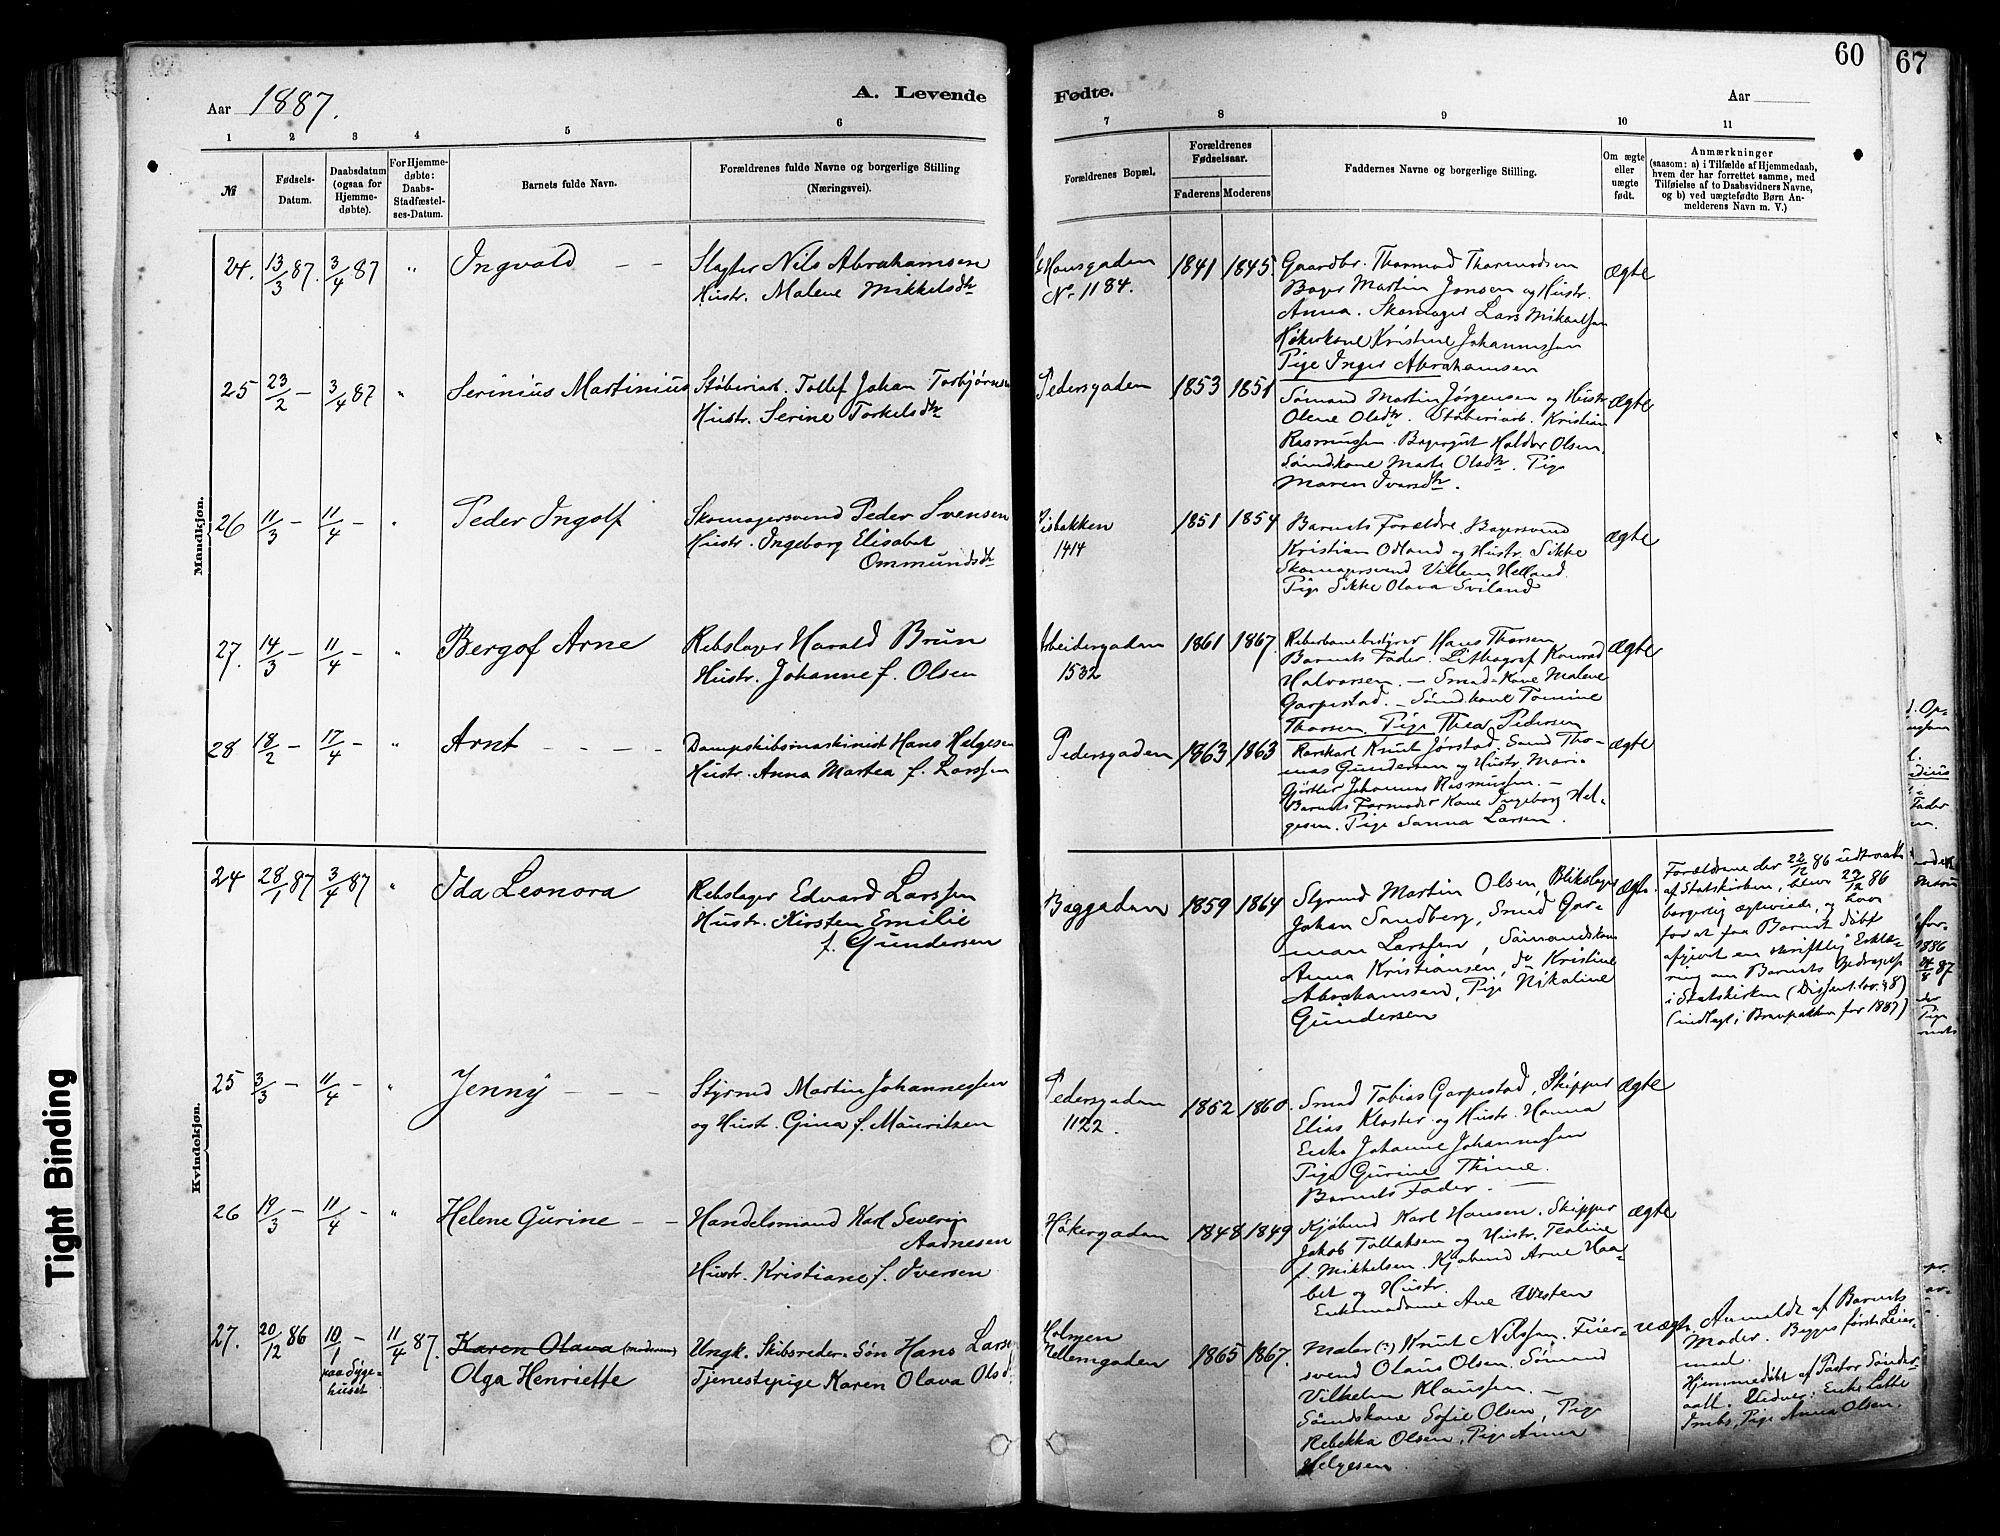 60
67
Aar 1887.
A. Levende
Fødte.
Aar
1 2 3 4 5 6
7 8 9 10 11
№
Fødsels-
Datum.
Daabsdatum
(ogsaa for
Hjemme-
døbte).
For Hjemme-
døbte:
Daabs-
Stadfæstel-
ses-Datum.
Barnets fulde Navn.
Forældrenes fulde Navne og borgerlige Stilling
(Næringsvei).
Forældrenes Bopæl.
Forældrenes
Fødselsaar.
Faderens Moderens
Faddernes Navne og borgerlige Stilling.
Om ægte
eller
uægte
født.
Anmærkninger
(saasom: a) i Tilfælde af Hjemmedaab,
hvem der har forrettet samme, med
Tilføielse af to Daabsvidners Navne,
og b) ved uægtefødte Børn An-
melderens Navn m. V.)
Mandkjøn.
24. 13/3 87. 3/4 87 " Ingvald
Slagter Nils Abrahamsen
Hustr. Malene Mikkelsdtr
Hansgaden
No 1184.
1841 1845.
Gaardbr. Thormod Thormodsen
Bager Martin Jonsen og Hustr.
Anna. Skomager Lars Mikaelsen
Høkerkone Kristine Johannessen
Pige Inger Abrahamsen
ægte
25 23/2 – 3/4 87 " Serinius Martinius
Støberiarb. Tollef Johan Torbjørnsen
Hustr. Serine Torkelsdtr
Pedersgaden
1853 1851
Sømand Martin Jørgensen og Hustr
Olene Olsdtr. Støberiarb. Kristian
Rasmussen. Bagergut Haldor Olsen.
Sømdkone Marta Olsdtr. Pige
Maren Ivarsdtr.
ægte
26 11/3 – 11/4 – " Peder Ingolf
Skomagersvend Peder Svensen
Hustr. Ingeborg Elisabet
Ommundsdtr
1414
1851 1854
Barnets Forældre. Bagersvend
Kristian Odland og Hustr. Sikke
Skomagersvend Villem Helland.
Pige Sikke Olava Sviland
ægte
27. 14/3 – 11/4 – " Bergof Arne
Rebslager Harald Brun
Hustr. Johanne f. Olsen
Arbeidergaden
1532
1861 1867.
Reberbanebestyrer Hans Thorsen
Barnets Fader. Lithograf Konrad
Halvorsen. – Smed-Kone Malene
Garpestad. – Sømdkone Tomine
Thorsen. Pige Thea Pedersen
ægte
28 18/2 – 17/4 – " Arnt
Dampskibsmaskinist Hans Helgesen
Hustr. Anna Martea f. Larssen
Pedersgaden
1863 1863
Knut Jørstad. Smed Tho-
mas Gundersen og Hustr. Mari-
Gjørtler Johannes Rasmussen. –
Barnets Farmoder Kone Ingeborg Hel-
gesen. Pige Sanna Larsen.
ægte
Kvindekjøn.
24 28/1 87 3/4 87 " Ida Leonora
Rebslager Edvard Larssen
Hustr. Kirsten Emilie
f. Gundersen
Baggaden
1859 1864
Styrmd Martin Olsen, Blikslager
Johan Sandberg, Smed Gar-
man Larssen, Sømandskone
Anna Kristiansen, do Kristine
Abrahamsen, Pige Nikoline
Gundersen
ægte.
Forældrene der 22/12 86 udtraadte
af Statskirken, bleve 29/12 86
borgerlig ægteviede, og have
for at faa Barnet døbt
afgivet en skriftlig Erklæ-
ring om Barnets Opdragelse
i Statskirken (Dissent. lov. § 8)
(indlagt i Brevpakken for 1887)
25 3/3 – 11/4 – " Jenny
Styrmd Martin Johannessen
og Hustr. Gina f. Mauritzen
Pedersgaden
1122.
1852 1860.
Smed Tobias Garpestad, Skipper
Elias Kloster og Hustr. Hanna
Enke Johanne Johannessen
Pige Gurine Thime.
Barnets Fader. –
ægte
26 19/3 – 11/4 – " Helene Gurine
Handelsmand Karl Severin
Aadnesen
Hustr. Kristiane f. Iversen
Høkergaden
1848 1849
Kjøbmd Karl Hansen. Skipper
Jakob Tollaksen og Hustr. Tealine
f. Mikkelsen. Kjøbmd Arne Haa-
bet og Hustr.
Enkemadame Ane Vesten
ægte
27. 20/12 86 10/1 –
paa Syge-
huset
11/4 87. Karen Olava (moderen)
Olga Henriette
Ungk. Skibsreder-Søn Hans Lars
Tjenestepige Karen Olava Olsd.
Holmen
1865 1867.
Maler (?) Knut Nilssen. Feier-
svend Olaus Olsen. Sømand
Vilhelm Klaussen. –
Sømdskone Sofie Olsen, Pige
Rebekka Olsen, Pige Anna
Helgesen
uægte
Anmeldt af Barnets
Moder. Begges første Leier-
maal.
Hjemmedøbt af Pastor Sønder-
aall. Vidner: Enke Lotte
Imbs, Pige Anna Olsen.
Tight Binding